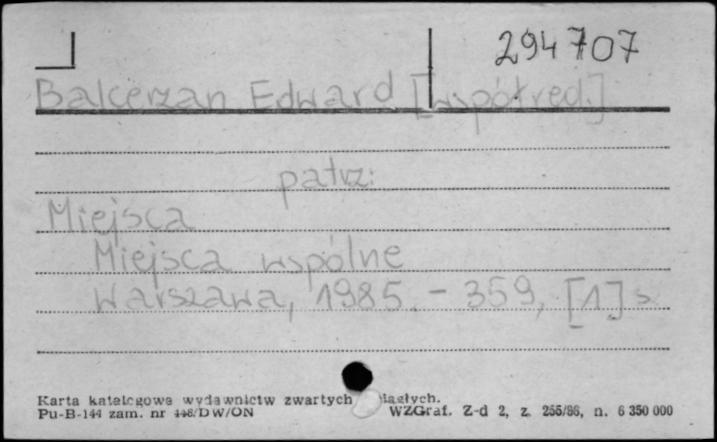 294707
Balcerzan Edward [współred.]
patrz:
Miejsca
Miejsca wspólne
Warszawa, 1985. - 359, [1] s
Karta katalogowa wydawnictw zwartych
Pu-B-144 zam. nr 448/DW/ON WZGraf. Z-d 2, z. 255/86, n. 6 350 000